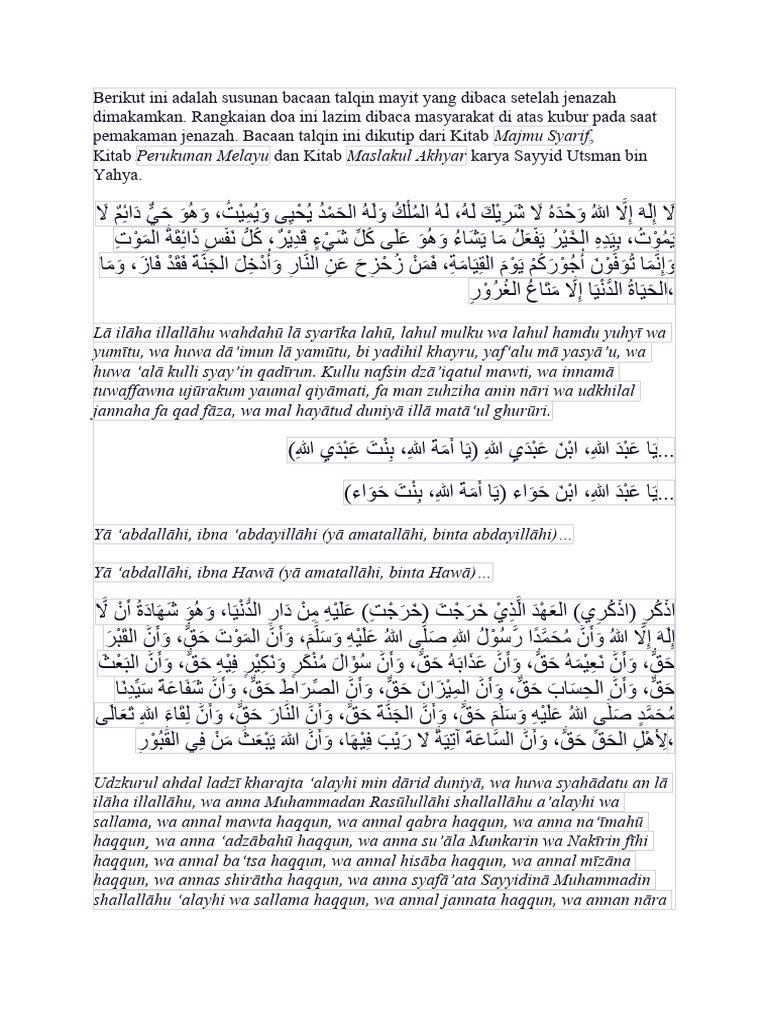 Berikut ini adalah susunan bacaan talqin mayit yang dibaca setelah jenazah
dimakamkan. Rangkaian doa ini lazim dibaca masyarakat di atas kubur pada saat
pemakaman jenazah. Bacaan talqin ini dikutip dari Kitab Majmu Syarif,
Kitab Perukunan Melayu dan Kitab Maslakul Akhyar karya Sayyid Utsman bin
Yahya.
لَا إِلَهَ إِلَّا اللهُ وَحْدَهُ لَا شَرِيْكَ لَهُ، لَهُ المُلْكُ وَلَهُ الحَمْدُ يُحْيِى وَيُمِيْتُ، وَهُوَ حَيٌّ دَائِمٌ لَا
يَمُوْتُ، بِيَدِهِ الخَيْرُ يَفْعَلُ مَا يَشَاءُ وَهُوَ عَلَى كُلِّ شَيْءٍ قَدِيْرٌ، كُلُّ نَفْسٍ ذَائِقَةُ المَوْتِ
وَإِنَّمَا تُوَفَّوْنَ أُجُوْرَكُمْ يَوْمَ القِيَامَةِ، فَمَنْ زُحْزِحَ عَنِ النَّارِ وَأُدْخِلَ الجَنَّةَ فَقَدْ فَازَ، وَمَا
،الحَيَاةُ الدُّنْيَا إِلَّا مَتَاعُ الغُرُوْرِ
Lā ilāha illallāhu wahdahū lā syarīka lahū, lahul mulku wa lahul hamdu yuhyī wa
yumītu, wa huwa dā’imun lā yamūtu, bi yadihil khayru, yaf‘alu mā yasyā’u, wa
huwa ‘alā kulli syay’in qadīrun. Kullu nafsin dzā’iqatul mawti, wa innamā
tuwaffawna ujūrakum yaumal qiyāmati, fa man zuhziha anin nāri wa udkhilal
jannaha fa qad fāza, wa mal hayātud duniyā illā matā‘ul ghurūri.
...يَا عَبْدَ اللهِ، ابْنَ عَبْدَيِ اللهِ (يَا أَمَةَ اللهِ، بِنْتَ عَبْدَيِ اللهِ)
...يَا عَبْدَ اللهِ، ابْنَ حَوَاء (يَا أَمَةَ اللهِ، بِنْتَ حَوَاء)
Yā ‘abdallāhi, ibna ‘abdayillāhi (yā amatallāhi, binta abdayillāhi)…
Yā ‘abdallāhi, ibna Hawā (yā amatallāhi, binta Hawā)…
اذْكُرِ (اذْكُرِي) العَهْدَ الَّذِيْ خَرَجْتَ (خَرَجْتِ) عَلَيْهِ مِنْ دَارِ الدُّنْيَا، وَهُوَ شَهَادَةُ أَنْ لَّا
إِلَهَ إِلَّا اللهُ وَأَنَّ مُحَمَّدًا رَّسُوْلُ اللهِ صَلَّى اللهُ عَلَيْهِ وَسَلَّمَ، وَأَنَّ المَوْتَ حَقٌّ، وَأَنَّ القَبْرَ
حَقٌّ، وَأَنَّ نَعِيْمَهُ حَقٌّ، وَأَنَّ عَذَابَهُ حَقٌّ، وَأَنَّ سُؤَالَ مُنْكَرٍ وَنَكِيْرٍ فِيْهِ حَقٌّ، وَأَنَّ البَعْثَ
حَقٌّ، وَأَنَّ الحِسَابَ حَقٌّ، وَأَنَّ المِيْزَانَ حَقٌّ، وَأَنَّ الصِّرَاطَ حَقٌّ، وَأَنَّ شَفَاعَةَ سَيِّدِنَا
مُحَمَّدٍ صَلَّى اللهُ عَلَيْهِ وَسَلَّمَ حَقٌّ، وَأَنَّ الجَنَّةَ حَقٌّ، وَأَنَّ النَّارَ حَقٌّ، وَأَنَّ لِقَاءَ اللهِ تَعَالَى
،لِأَهْلِ الحَقِّ حَقٌّ، وَأَنَّ السَّاعَةَ آتِيَةٌ لَا رَيْبَ فِيْهَا، وَأَنَّ اللهَ يَبْعَثُ مَنْ فِي القُبُوْرِ
Udzkurul ahdal ladzī kharajta ‘alayhi min dārid duniyā, wa huwa syahādatu an lā
ilāha illallāhu, wa anna Muhammadan Rasūlullāhi shallallāhu a’alayhi wa
sallama, wa annal mawta haqqun, wa annal qabra haqqun, wa anna na‘īmahū
haqqun¸ wa anna ‘adzābahū haqqun, wa anna su’āla Munkarin wa Nakīrin fīhi
haqqun, wa annal ba‘tsa haqqun, wa annal hisāba haqqun, wa annal mīzāna
haqqun, wa annas shirātha haqqun, wa anna syafā’ata Sayyidinā Muhammadin
shallallāhu ‘alayhi wa sallama haqqun, wa annal jannata haqqun, wa annan nāra